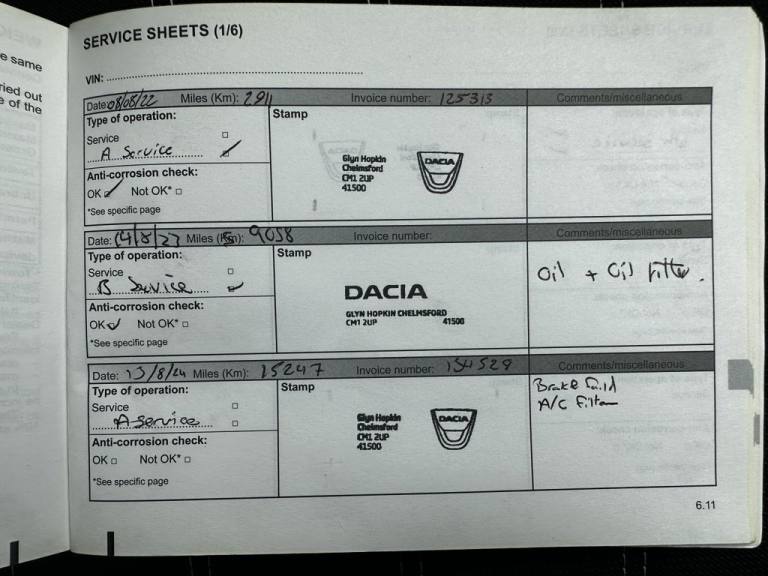 e same
ried out
e of the
SERVICE SHEETS (1/6)
VIN:
Date: 08/08/22 Miles (Km): 2911 Invoice number: 125313 Comments/miscellaneous
Type of operation:
Service
A Service
Anti-corrosion check:
OK Not OK*
*See specific page
Stamp
Glyn Hopkin
Chelmsford
CM1 2UP
41500
DACIA
Date: 14/8/23 Miles (Km): 9058 Invoice number: Comments/miscellaneous
Type of operation:
Service
B Service
Anti-corrosion check:
OK Not OK*
*See specific page
Stamp
DACIA
GLYN HOPKIN CHELMSFORD
CM1 2UP 41500
Oil + Oil Filter.
Date: 13/8/24 Miles (Km): 15247 Invoice number: 154529 Comments/miscellaneous
Type of operation:
Service
A Service
Anti-corrosion check:
OK Not OK*
*See specific page
Stamp
Glyn Hopkin
Chelmsford
CM1 2UP
41500
DACIA
Brake fluid
A/C Filter
6.11